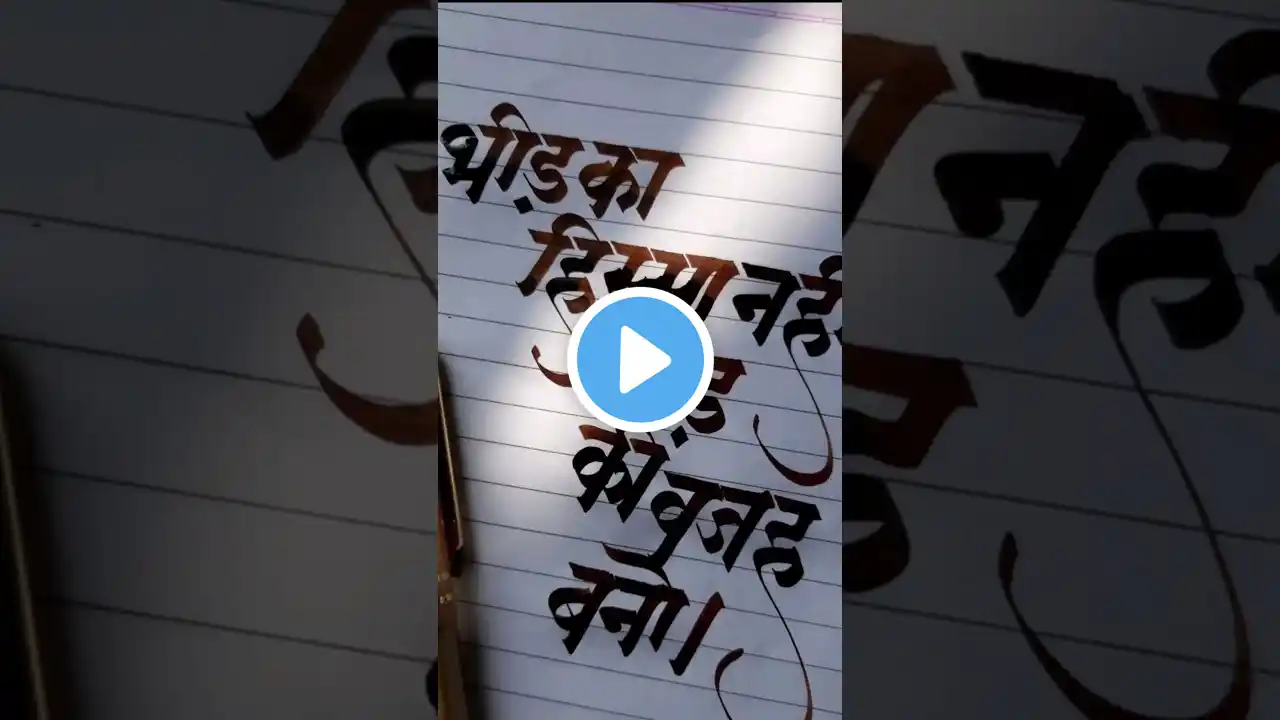 भीड़ का
हिस्सा नहीं
की वजह
बनो।